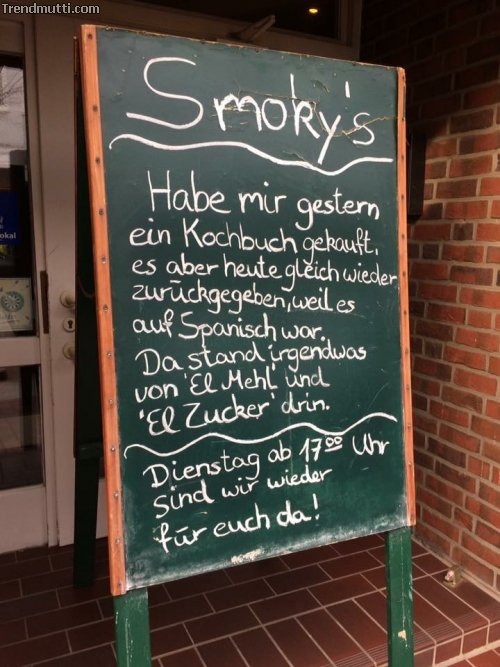 Trendmutti.com
Smoky's
Habe mir gestern
ein Kochbuch gekauft,
es aber heute gleich wieder
zurückgegeben, weil es
auf Spanisch war.
Da stand irgendwas
von 'El Mehl' und
'El Zucker' drin.
Dienstag ab 17⁰⁰ Uhr
sind wir wieder
für euch da!